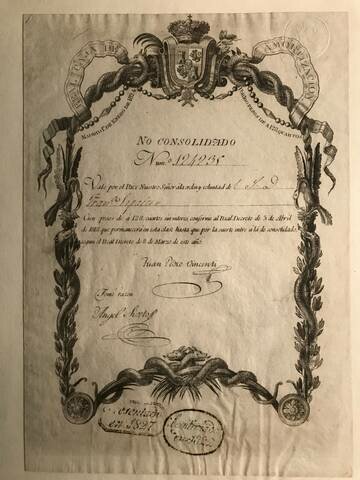 REAL CAXA DE AMORTIZACION
No CONSOLIDADO
Num.º 124235
Vale por el Rey Nuestro Señor á la orden y voluntad de
Cien pesos de á 128 cuartos sin interes, conforme al Real Decreto de 3 de Abril
de 1818 que permanecerá en esta clase hasta que por la suerte entre á la de consolidado,
segun el Real Decreto de 8 de Marzo de este año.
Juan Perez Vincenti
Tomé razon
Angel
Presentado
en 1827